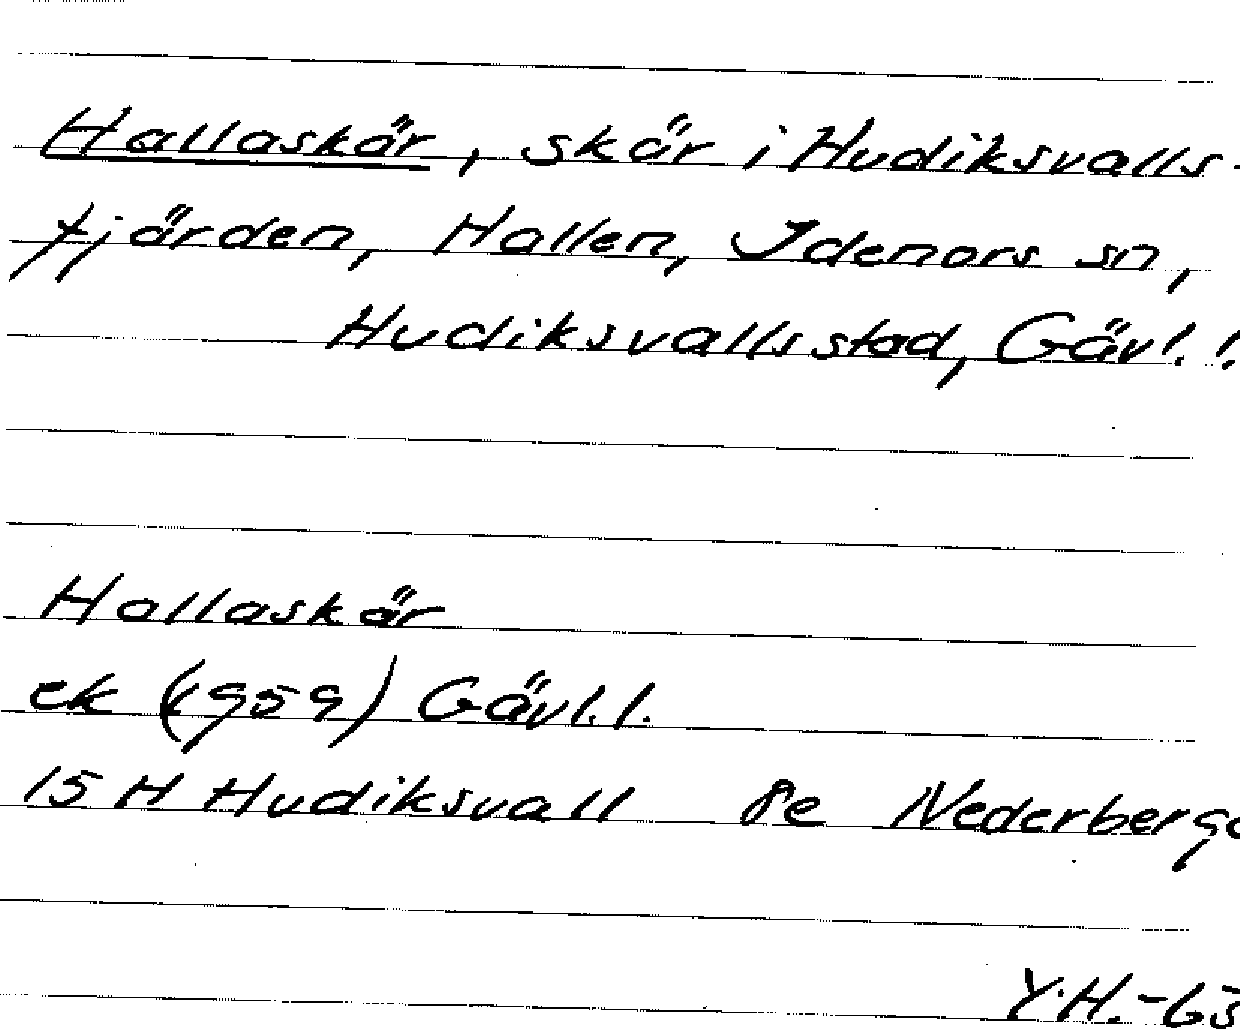 Hallaskär, skär i Hudiksvalls-
fjärden, Hallen, Idenors sn,
Hudiksvalls stad, Gävl. l.
Hallaskär
ek (1959) Gävl. l.
15 H Hudiksvall 8e Nederberge
Y.H.-63